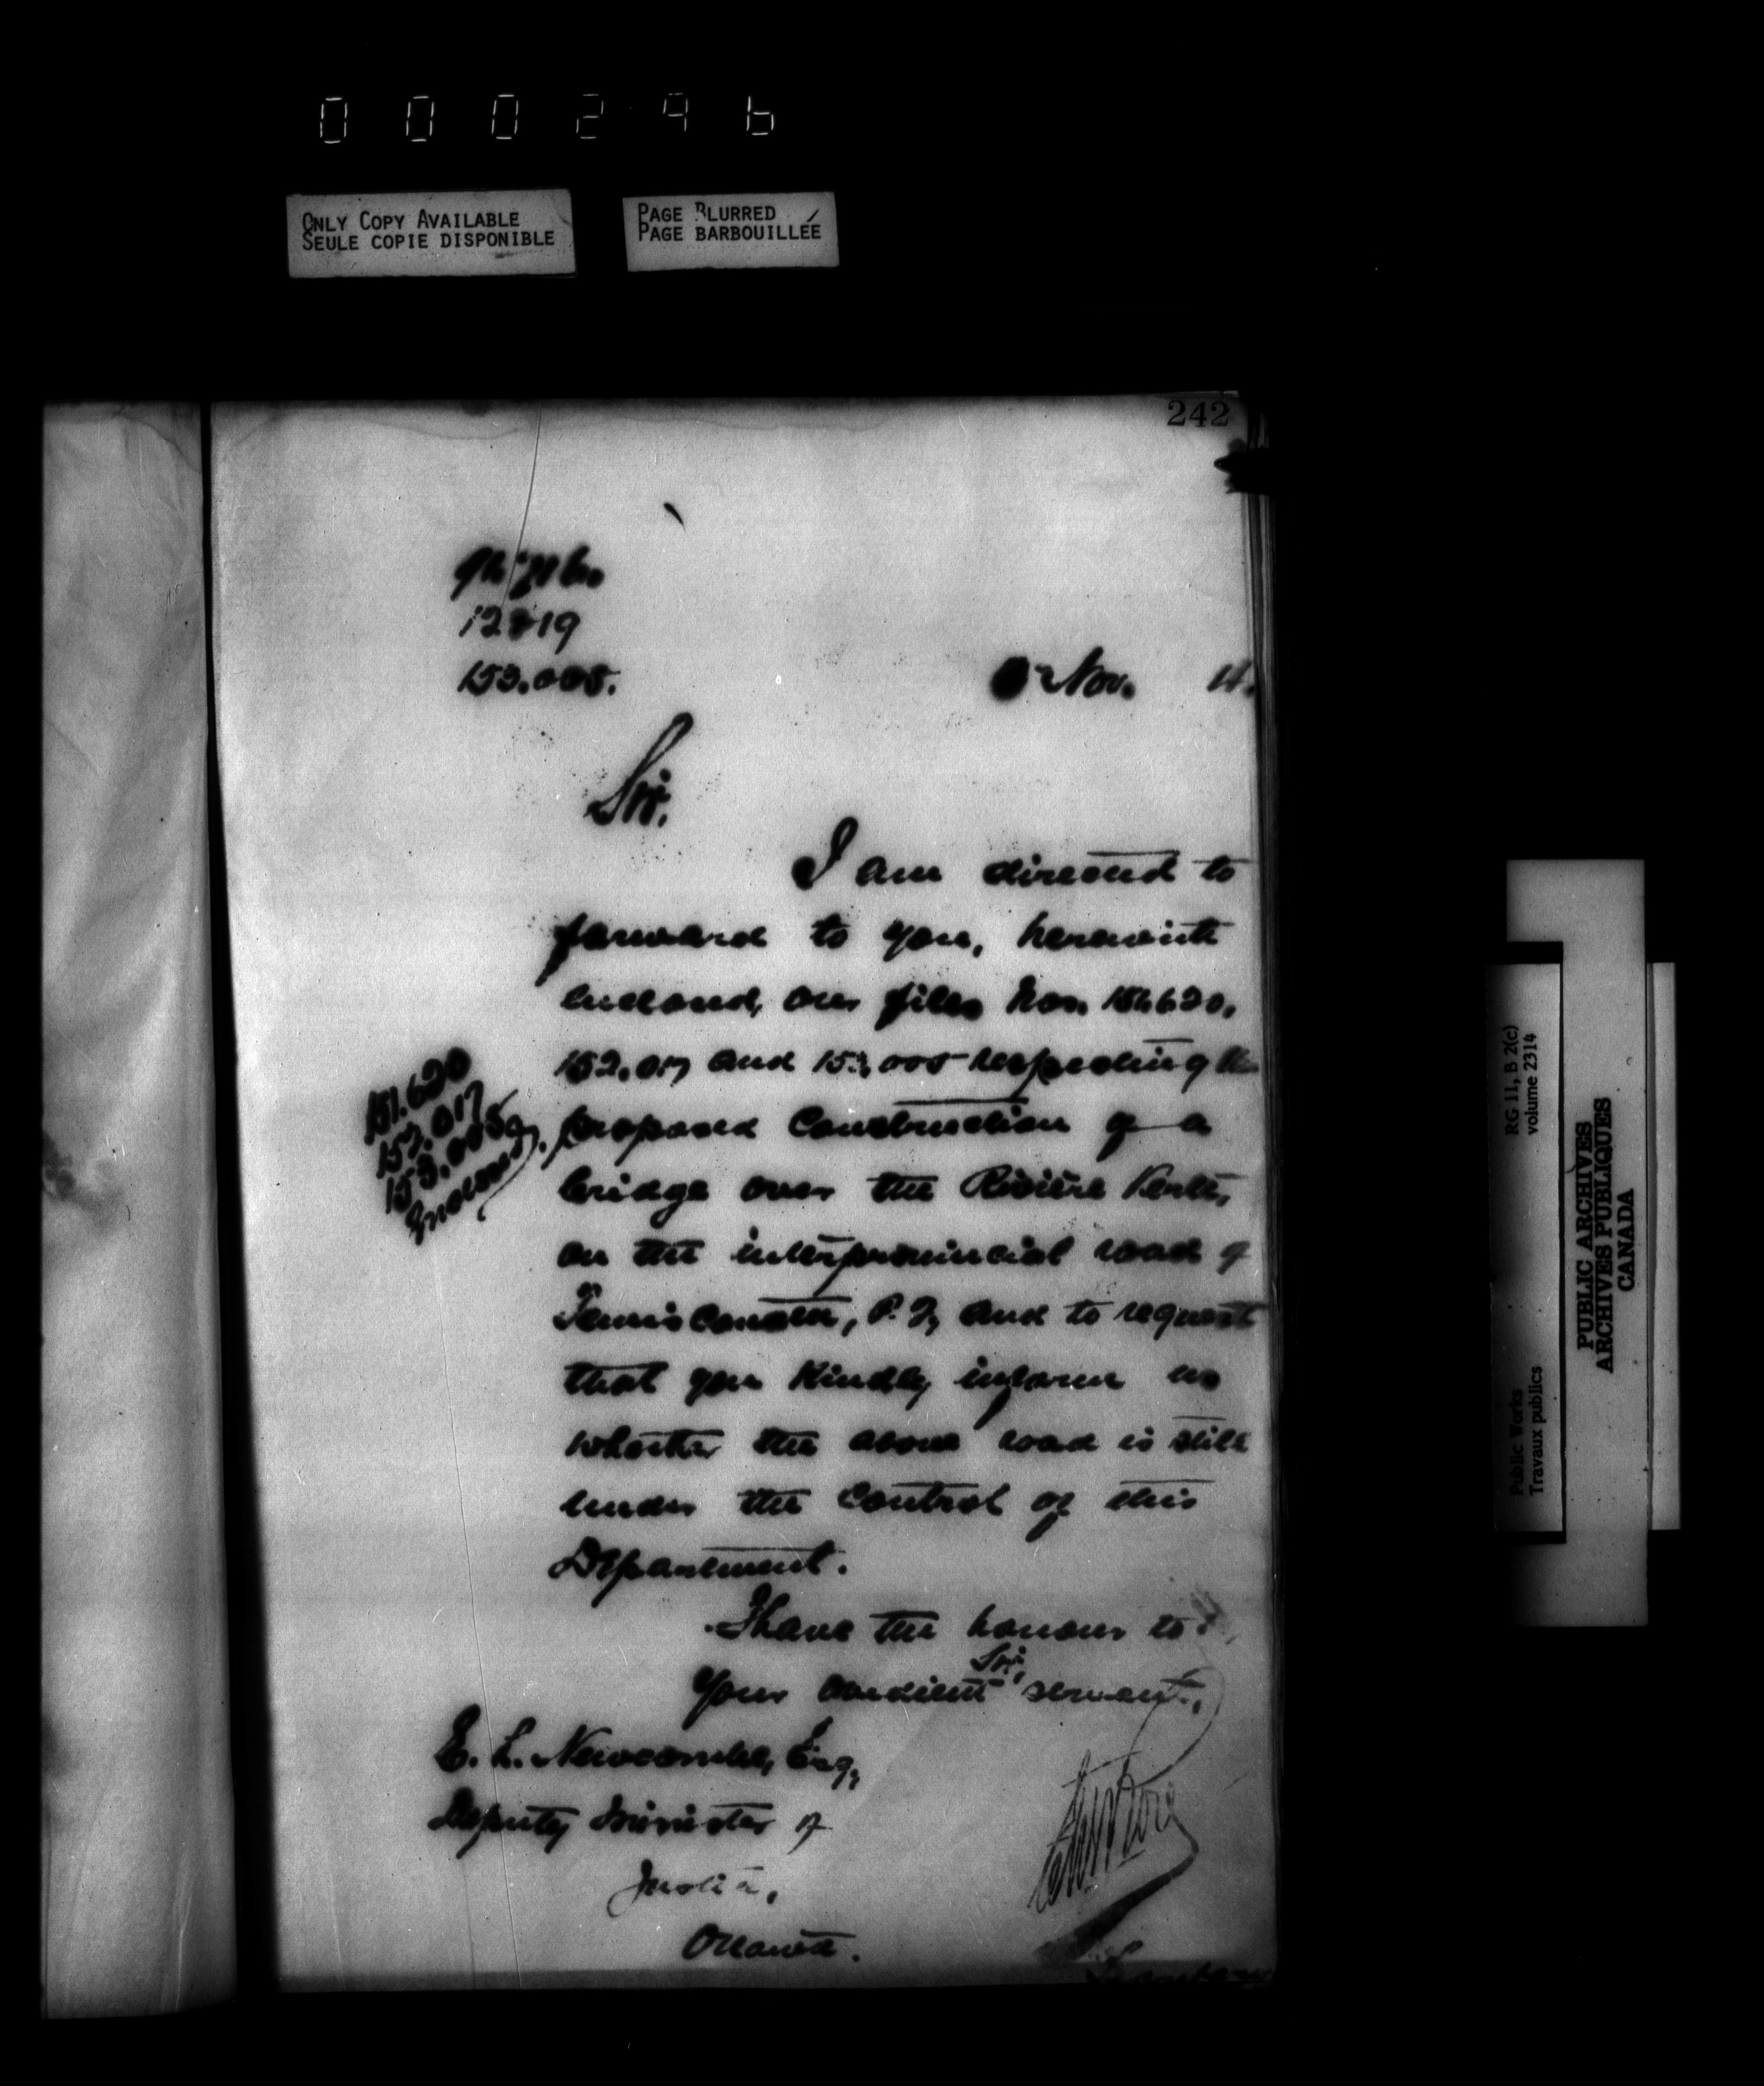 000296
ONLY COPY AVAILABLE
SEULE COPIE DISPONIBLE
PAGE BLURRED
PAGE BARBOUILLÉE
242
12819
153.005.
Nov.
Sir.
I am directed to
forward to you, herewith
enclosed, our files Nos. 151620,
152,017 and 153,005 respecting the
proposed construction of a
bridge over the Rivière Verte,
on the interprovincial road of
Temiscouata, P. Q, and to request
that you kindly inform us
whether the above road is still
under the control of this
Department.
151.620
152.017
153.005
I have the honour to
Sir,
Your obedient servant.
E. L. Newcombe, Esq,
Deputy Minister of
Justice,
Ottawa.
RG 11, B 2(c)
volume 2314
Public Works
Travaux publics
PUBLIC ARCHIVES
ARCHIVES PUBLIQUES
CANADA